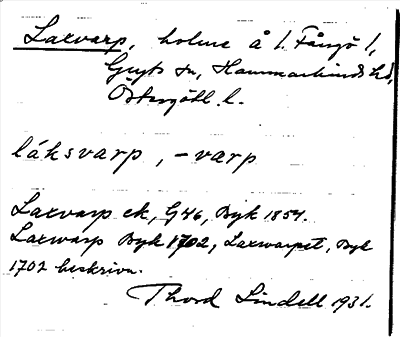 Laxvarp, holme å l. Fångö l,
Gryts sn, Hammarkinds hd,
Östergötl. l.
láksvarp, -varp
Laxvarp ek, G46, Byk 1854.
Laxwarp Byk 1702, Laxwarpet, Byk
1702 beskrivn.
Thord Lindell 1931.